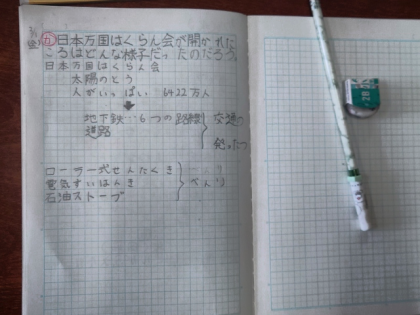 3/1 (金) 五 日本万国はくらん会が開かれた
ころはどんな様子だったのだろう。
日本万国はくらん会
太陽のとう
人がいっぱい 6422万人
地下鉄…6つの路線 交通の
道路 発たつ
ローラー式せんたくき
電気すいはんき べんり
石油ストーブ